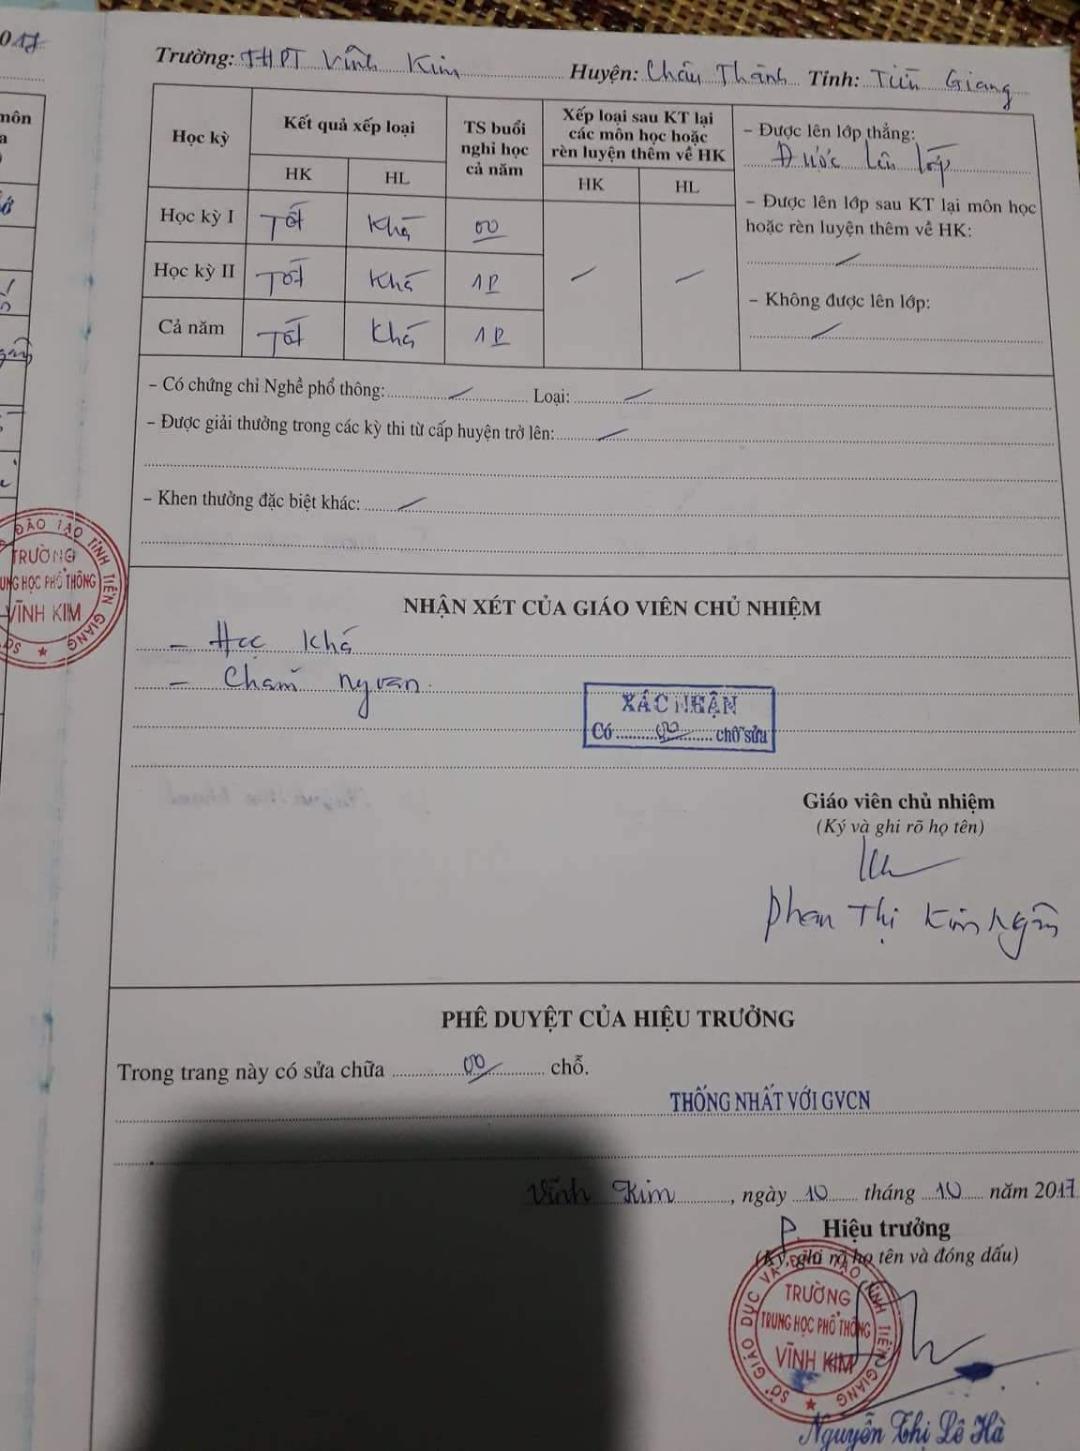 017
Trường: THPT Vĩnh Kim Huyện: Châu Thành Tỉnh: Tiền Giang
môn
Học kỳ
Kết quả xếp loại
HK
HL
TS buổi
nghỉ học
cả năm
Xếp loại sau KT lại
các môn học hoặc
rèn luyện thêm về HK
HK
HL
– Được lên lớp thẳng:
Được lên lớp
– Được lên lớp sau KT lại môn học
hoặc rèn luyện thêm về HK:
– Không được lên lớp:
Học kỳ I Tốt Khá 00
Học kỳ II Tốt Khá 1P
Cả năm Tốt Khá 1P
– Có chứng chỉ Nghề phổ thông: Loại:
– Được giải thưởng trong các kỳ thi từ cấp huyện trở lên:
– Khen thưởng đặc biệt khác:
ĐÀO TẠO TỈNH TIỀN GIANG
TRƯỜNG
UNG HỌC PHỔ THÔNG
VĨNH KIM
NHẬN XÉT CỦA GIÁO VIÊN CHỦ NHIỆM
– Học khá
– Chăm ngoan.
XÁC NHẬN
Có 00 chỗ sửa
Giáo viên chủ nhiệm
(Ký và ghi rõ họ tên)
Phan Thị Kim Ngân
PHÊ DUYỆT CỦA HIỆU TRƯỞNG
Trong trang này có sửa chữa 00 chỗ.
THỐNG NHẤT VỚI GVCN
Vĩnh Kim, ngày 10 tháng 10 năm 2017
P. Hiệu trưởng
(Ký, ghi rõ họ tên và đóng dấu)
SỞ GIÁO DỤC VÀ ĐÀO TẠO TỈNH TIỀN GIANG
TRƯỜNG
TRUNG HỌC PHỔ THÔNG
VĨNH KIM
Nguyễn Thị Lê Hà